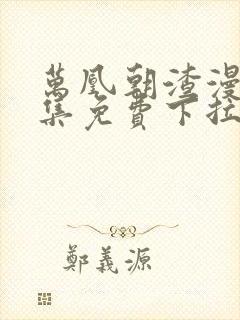 萬凰朝渣漫
集免費下拉
鄭義源